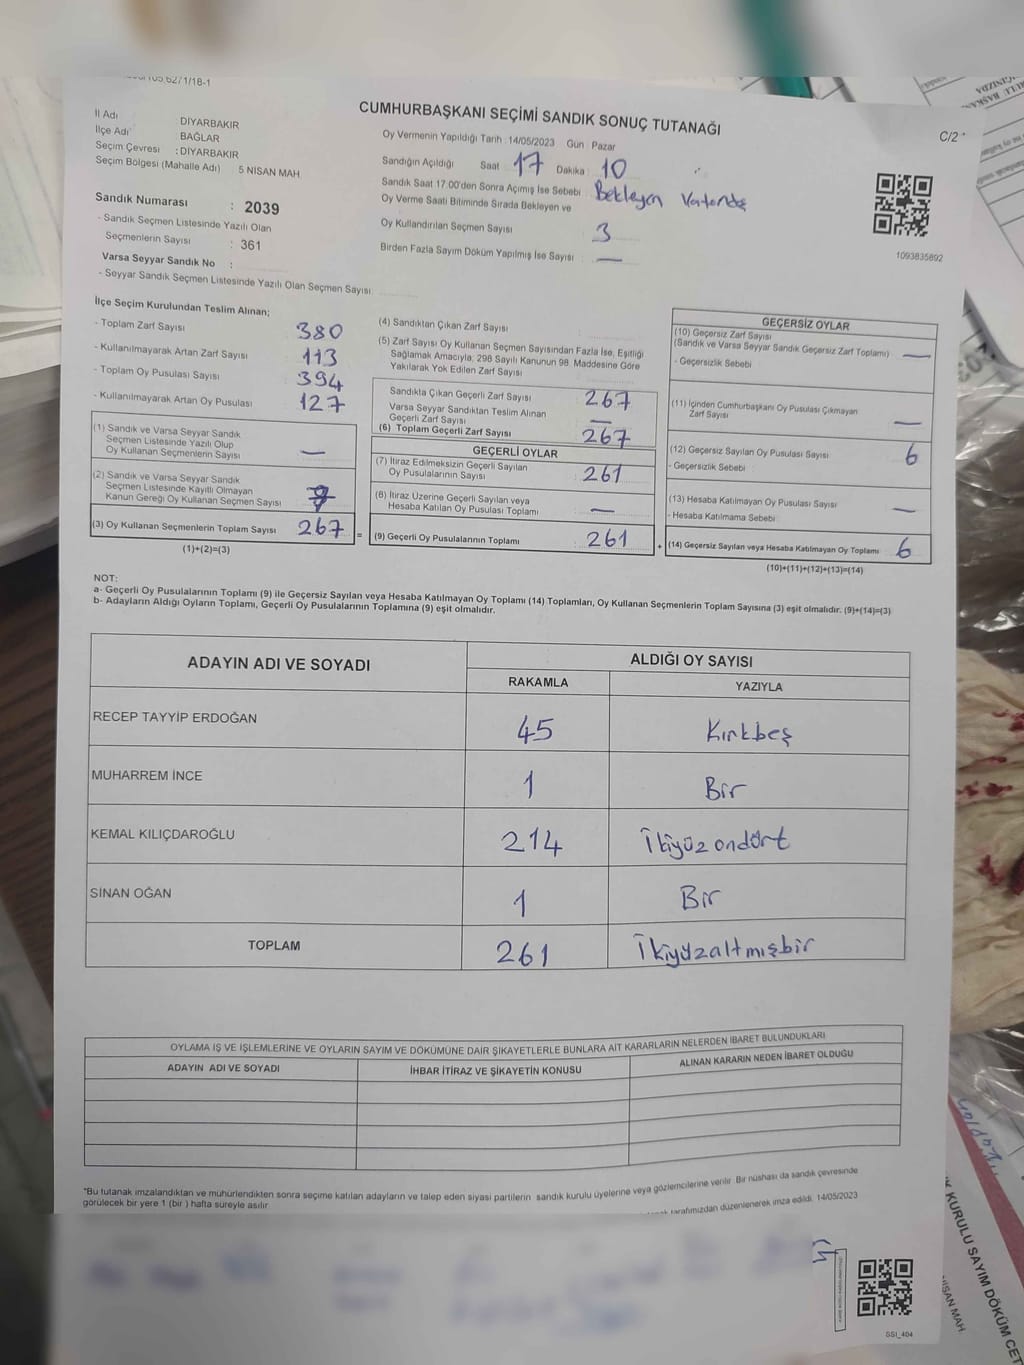 CUMHURBAŞKANI SEÇİMİ SANDIK SONUÇ TUTANAĞI
C/2
İl Adı DİYARBAKIR
İlçe Adı : BAĞLAR
Seçim Çevresi : DİYARBAKIR
Seçim Bölgesi (Mahalle Adı) 5 NİSAN MAH.
Oy Vermenin Yapıldığı Tarih : 14/05/2023 Gün : Pazar
Sandığın Açıldığı Saat 17 Dakika : 10
Sandık Saat 17.00'den Sonra Açımış İse Sebebi : Bekleyen Vatandaş
Oy Verme Saati Bitiminde Sırada Bekleyen ve
Oy Kullandırılan Seçmen Sayısı : 3
Birden Fazla Sayım Döküm Yapılmış İse Sayısı : —
1093835892
Sandık Numarası : 2039
- Sandık Seçmen Listesinde Yazılı Olan
Seçmenlerin Sayısı : 361
Varsa Seyyar Sandık No :
- Seyyar Sandık Seçmen Listesinde Yazılı Olan Seçmen Sayısı:
İlçe Seçim Kurulundan Teslim Alınan;
- Toplam Zarf Sayısı 380
- Kullanılmayarak Artan Zarf Sayısı 113
- Toplam Oy Pusulası Sayısı 394
- Kullanılmayarak Artan Oy Pusulası 127
(1) Sandık ve Varsa Seyyar Sandık
Seçmen Listesinde Yazılı Olup
Oy Kullanan Seçmenlerin Sayısı —
(2) Sandık ve Varsa Seyyar Sandık
Seçmen Listesinde Kayıtlı Olmayan
Kanun Gereği Oy Kullanan Seçmen Sayısı
(3) Oy Kullanan Seçmenlerin Toplam Sayısı 267 =
(1)+(2)=(3)
(4) Sandıktan Çıkan Zarf Sayısı
(5) Zarf Sayısı Oy Kullanan Seçmen Sayısından Fazla İse, Eşitliği
Sağlamak Amacıyla; 298 Sayılı Kanunun 98. Maddesine Göre
Yakılarak Yok Edilen Zarf Sayısı
Sandıkta Çıkan Geçerli Zarf Sayısı 267
Varsa Seyyar Sandıktan Teslim Alınan
Geçerli Zarf Sayısı —
(6) Toplam Geçerli Zarf Sayısı 267
GEÇERLİ OYLAR
(7) İtiraz Edilmeksizin Geçerli Sayılan
Oy Pusulalarının Sayısı 261
(8) İtiraz Üzerine Geçerli Sayılan veya
Hesaba Katılan Oy Pusulası Toplamı —
(9) Geçerli Oy Pusulalarının Toplamı 261 +
GEÇERSİZ OYLAR
(10) Geçersiz Zarf Sayısı
(Sandık ve Varsa Seyyar Sandık Geçersiz Zarf Toplamı) —
- Geçersizlik Sebebi
(11) İçinden Cumhurbaşkanı Oy Pusulası Çıkmayan
Zarf Sayısı —
(12) Geçersiz Sayılan Oy Pusulası Sayısı 6
- Geçersizlik Sebebi
(13) Hesaba Katılmayan Oy Pusulası Sayısı —
- Hesaba Katılmama Sebebi
(14) Geçersiz Sayılan veya Hesaba Katılmayan Oy Toplamı 6
(10)+(11)+(12)+(13)=(14)
NOT:
a- Geçerli Oy Pusulalarının Toplamı (9) ile Geçersiz Sayılan veya Hesaba Katılmayan Oy Toplamı (14) Toplamları, Oy Kullanan Seçmenlerin Toplam Sayısına (3) eşit olmalıdır. (9)+(14)=(3)
b- Adayların Aldığı Oyların Toplamı, Geçerli Oy Pusulalarının Toplamına (9) eşit olmalıdır.
ADAYIN ADI VE SOYADI ALDIĞI OY SAYISI
RAKAMLA YAZIYLA
RECEP TAYYİP ERDOĞAN 45 Kırkbeş
MUHARREM İNCE 1 Bir
KEMAL KILIÇDAROĞLU 214 İkiyüzondört
SİNAN OĞAN 1 Bir
TOPLAM 261 İkiyüzaltmışbir
OYLAMA İŞ VE İŞLEMLERİNE VE OYLARIN SAYIM VE DÖKÜMÜNE DAİR ŞİKAYETLERLE BUNLARA AİT KARARLARIN NELERDEN İBARET BULUNDUKLARI
ADAYIN ADI VE SOYADI İHBAR İTİRAZ VE ŞİKAYETİN KONUSU ALINAN KARARIN NEDEN İBARET OLDUĞU
"Bu tutanak imzalandıktan ve mühürlendikten sonra seçime katılan adayların ve talep eden siyasi partilerin sandık kurulu üyelerine veya gözlemcilerine verilir. Bir nüshası da sandık çevresinde
görülecek bir yere 1 (bir) hafta süreyle asılır.
tarafımızdan düzenlenerek imza edildi. 14/05/2023
SSI_404
KURULU SAYIM DÖKÜM CET
NİSAN MAH.